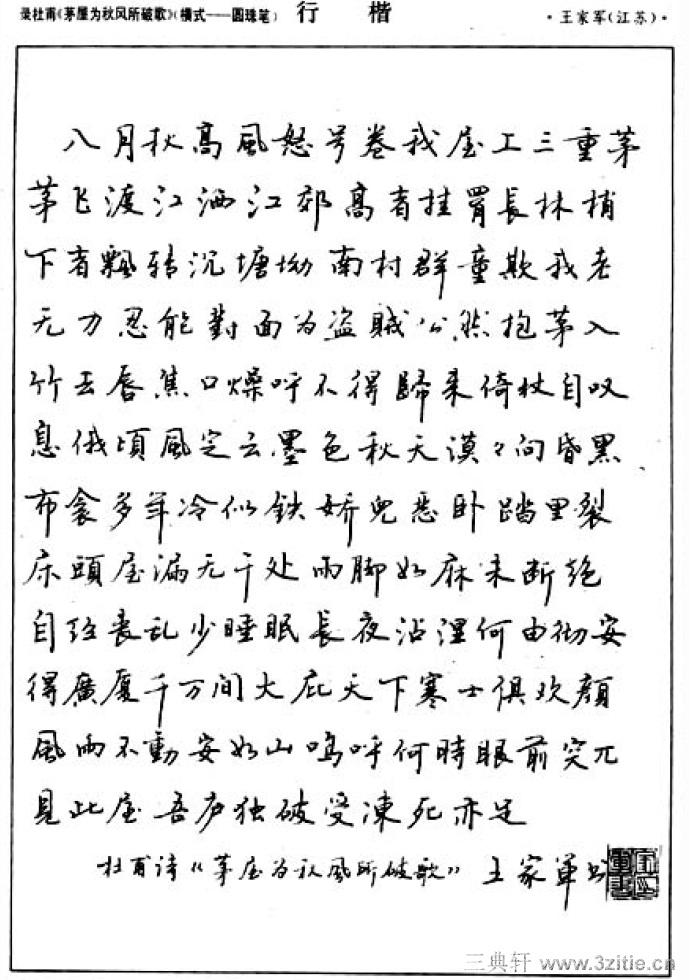 录杜甫《茅屋为秋风所破歌》(横式——圆珠笔) 行 楷 ·王家军(江苏)·
八月秋高風怒号卷我屋上三重茅
茅飞渡江洒江郊高者挂罥長林梢
下者飄转沉塘坳南村群童欺我老
无力忍能對面为盗贼公然抱茅入
竹去唇焦口燥呼不得歸来倚杖自叹
息俄頃風定云墨色秋天漠々向昏黑
布衾多年冷似鉄娇兒恶卧踏里裂
床頭屋漏无干处雨脚如麻未断绝
自经丧乱少睡眠長夜沾湿何由彻安
得廣厦千万间大庇天下寒士俱欢顔
風雨不動安如山嗚呼何時眼前突兀
見此屋吾庐独破受凍死亦足
杜甫诗《茅屋为秋風所破歌》王家军书
三典轩 www.3zitie.cn